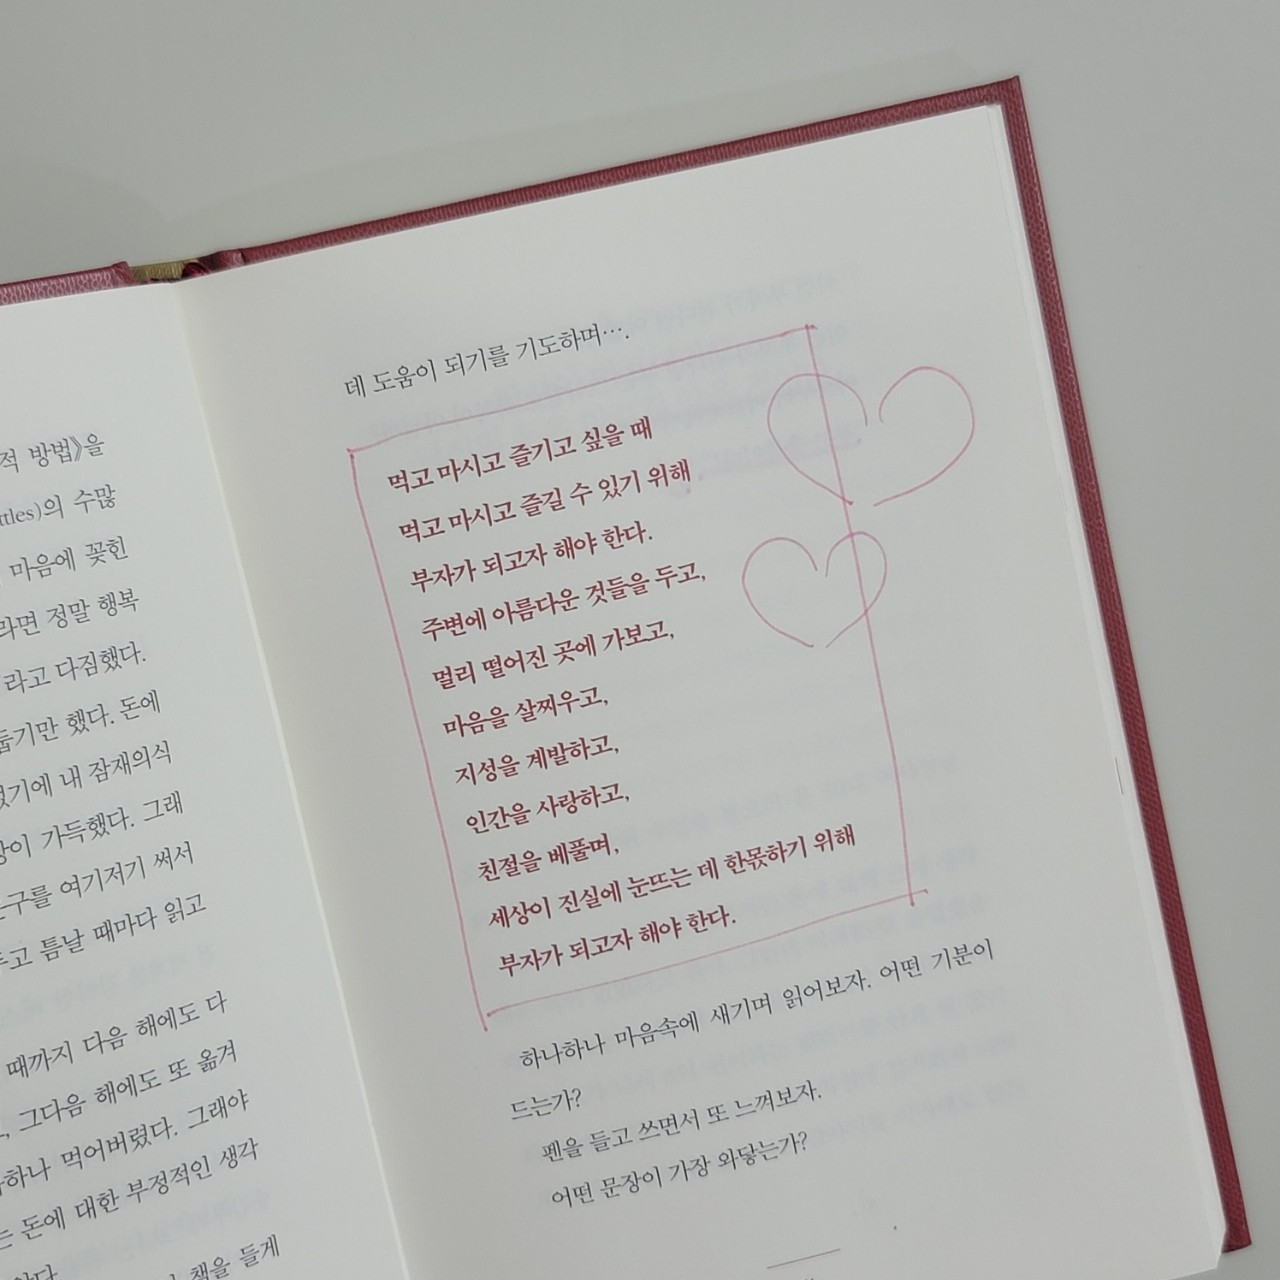 적 방법》을
ttles)의 수많
마음에 꽂힌
라면 정말 행복
라고 다짐했다.
기만 했다. 돈에
기에 내 잠재의식
이 가득했다. 그래
구를 여기저기 써서
두고 틈날 때마다 읽고
때까지 다음 해에도 다
그다음 해에도 또 옮겨
하나 먹어버렸다. 그래야
는 돈에 대한 부정적인 생각
책을 들게
데 도움이 되기를 기도하며….
먹고 마시고 즐기고 싶을 때
먹고 마시고 즐길 수 있기 위해
부자가 되고자 해야 한다.
주변에 아름다운 것들을 두고,
멀리 떨어진 곳에 가보고,
마음을 살찌우고,
지성을 계발하고,
인간을 사랑하고,
친절을 베풀며,
세상이 진실에 눈뜨는 데 한몫하기 위해
부자가 되고자 해야 한다.
하나하나 마음속에 새기며 읽어보자. 어떤 기분이
드는가?
펜을 들고 쓰면서 또 느껴보자.
어떤 문장이 가장 와닿는가?